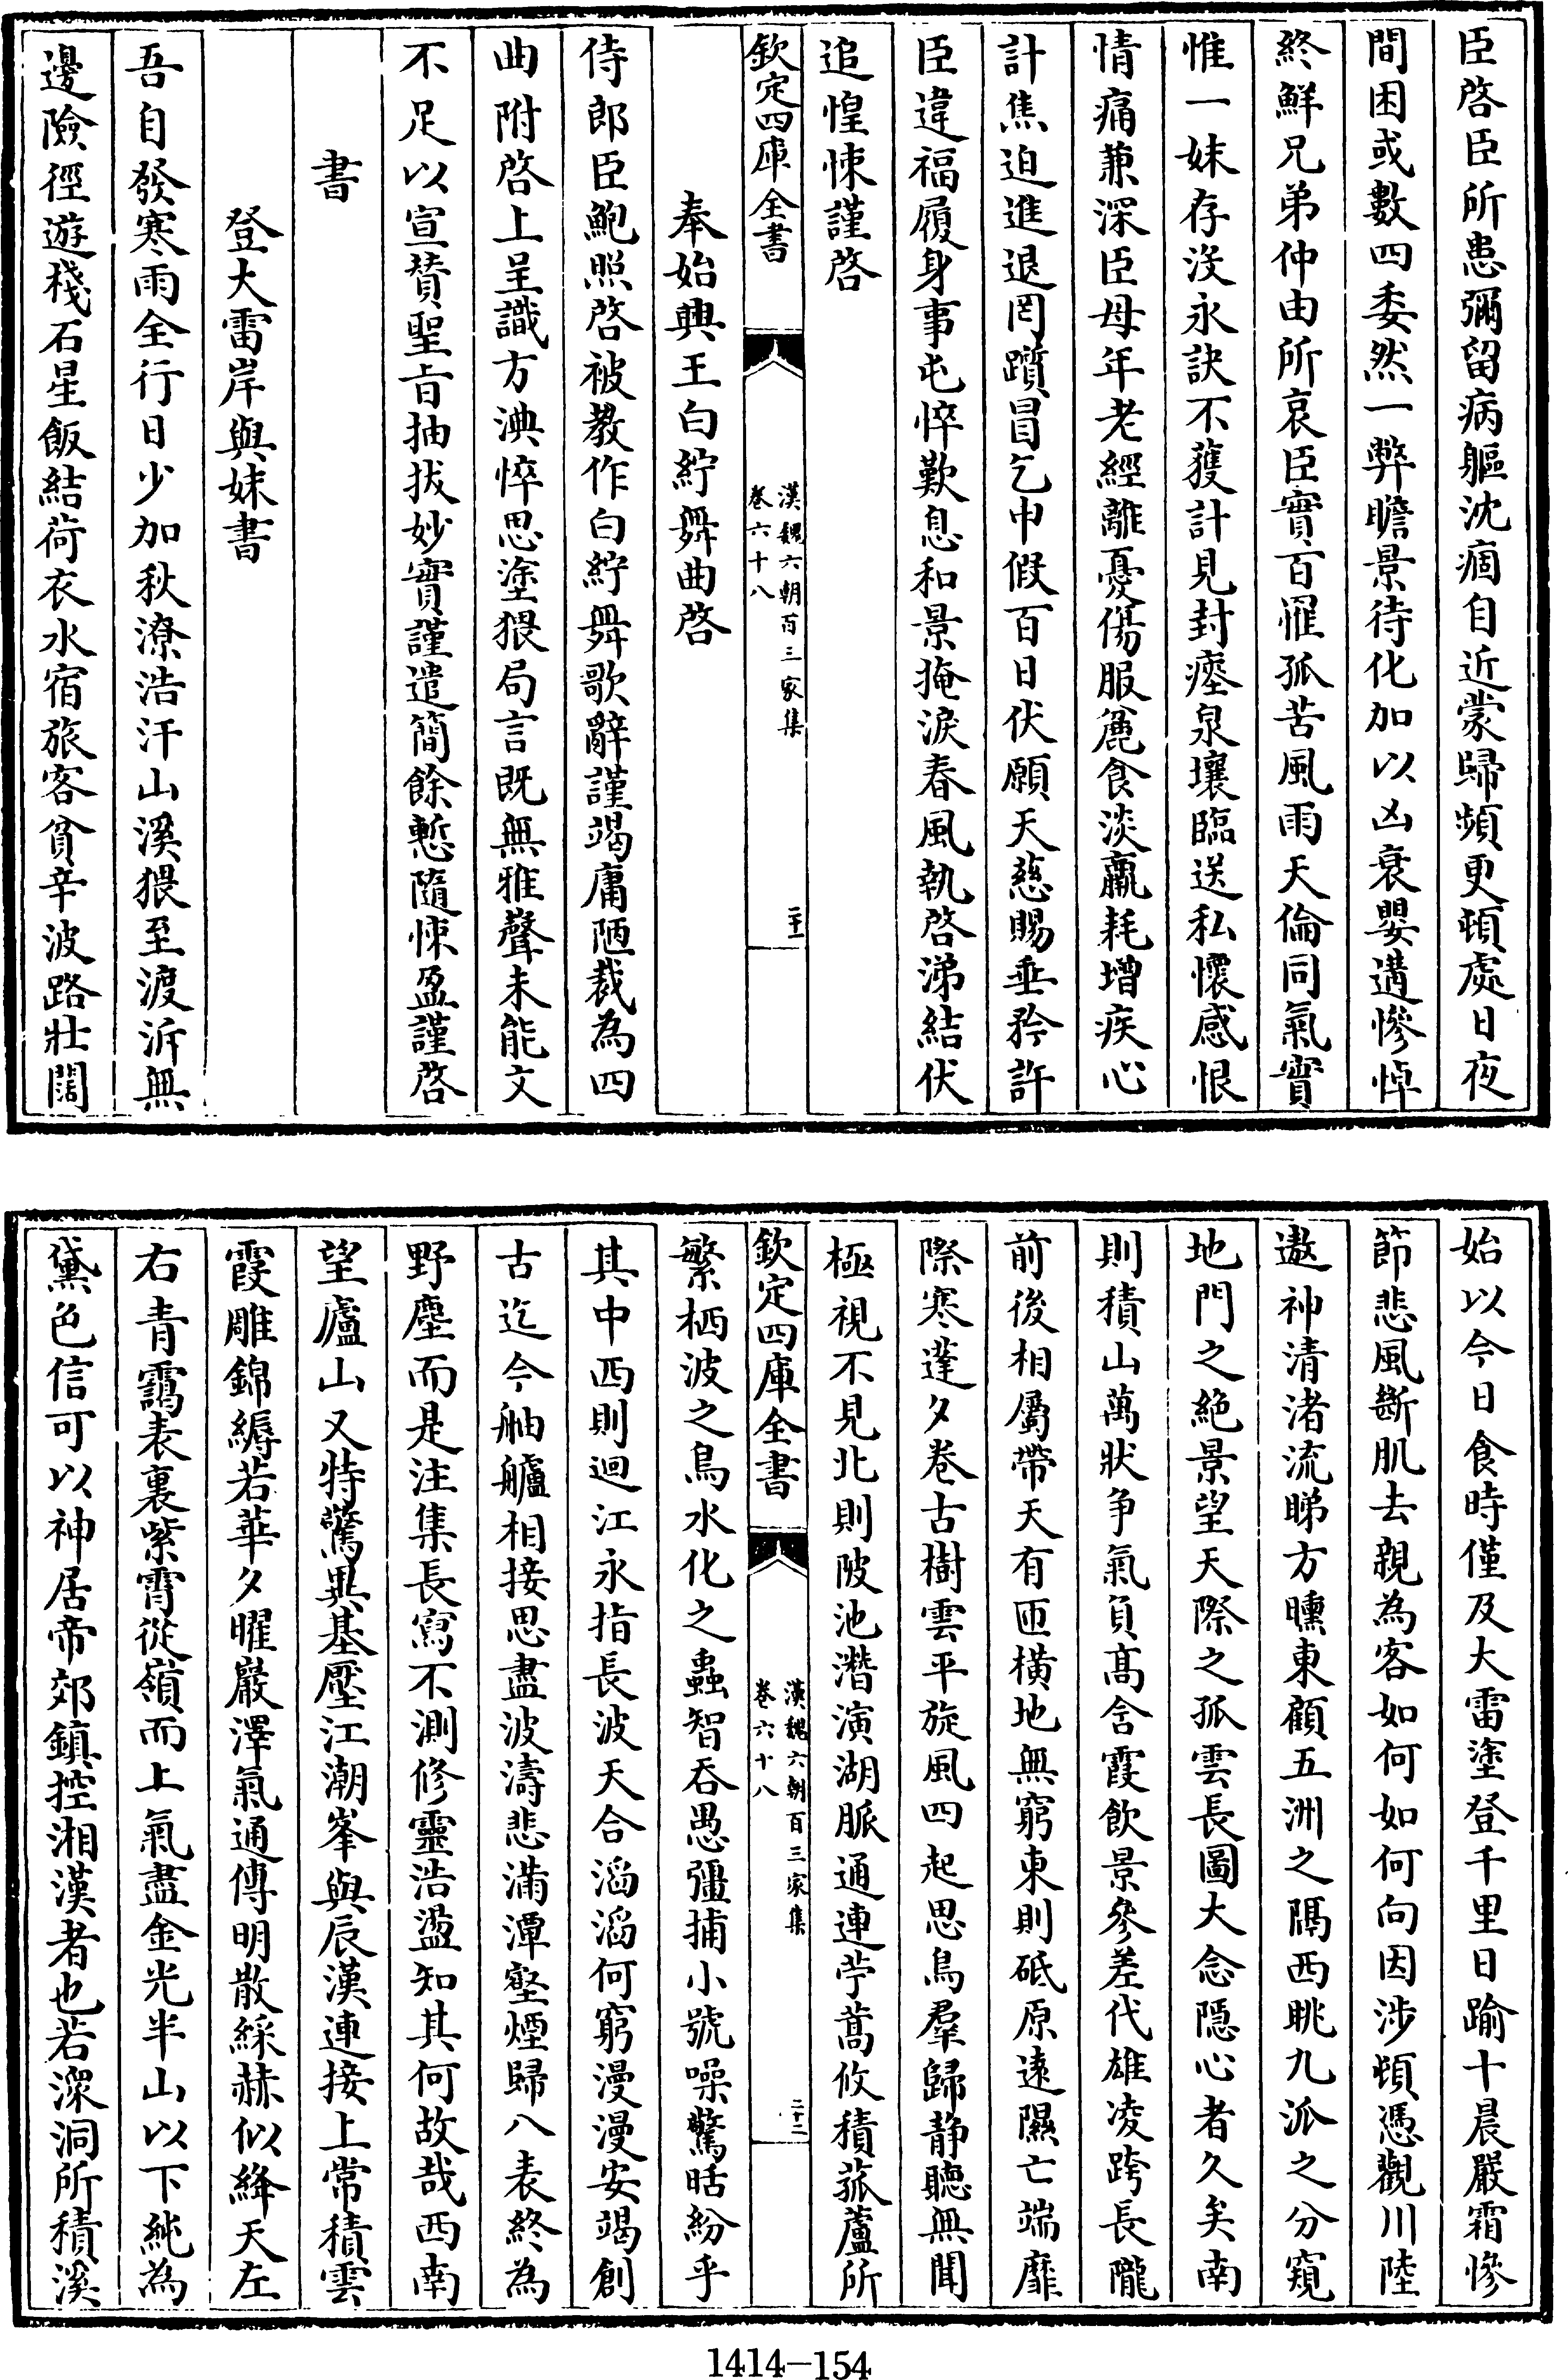 臣啓臣所患彌留病軀沈痼自近蒙歸頻更頓處日夜
間困或數四委然一弊瞻景待化加以凶衰嬰遘慘悼
終鮮兄弟仲由所哀臣實百罹孤苦風雨天倫同氣實
惟一妹存沒永訣不獲計見封瘞泉壤臨送私懷感恨
情痛兼深臣母年老經離憂傷服麄食淡羸耗增疾心
計焦迫進退罔躓冒乞申假百日伏願天慈賜垂矜許
臣違福履身事屯悴歎息和景掩淚春風執啓涕結伏
追惶悚謹啓
欽定四庫全書
漢魏六朝百三家集
卷六十八
二十一
奉始興王白紵舞曲啓
侍郎臣鮑照啓被教作白紵舞歌辭謹竭庸陋裁為四
曲附啓上呈識方淟悴思塗猥局言既無雅聲未能文
不足以宣贊聖旨抽拔妙實謹遣簡餘慙隨悚盈謹啓
書
登大雷岸與妹書
吾自發寒雨全行日少加秋潦浩汗山溪猥至渡泝無
邊險徑遊棧石星飯結荷衣水宿旅客貧辛波路壯闊
始以今日食時僅及大雷塗登千里日踰十晨嚴霜慘
節悲風斷肌去親為客如何如何向因涉頓憑觀川陸
遨神清渚流睇方曛東顧五洲之隔西眺九派之分窺
地門之絕景望天際之孤雲長圖大念隱心者久矣南
則積山萬狀争氣負髙含霞飲景參差代雄凌跨長隴
前後相屬帶天有匝橫地無窮東則砥原遠隰亡端靡
際寒蓬夕卷古樹雲平旋風四起思鳥羣歸静聽無聞
極視不見北則陂池潛演湖脈通連苧蒿攸積菰蘆所
欽定四庫全書
漢魏六朝百三家集
卷六十八
二十二
繁栖波之鳥水化之蟲智吞愚彊捕小號噪驚聒紛乎
其中西則迴江永指長波天合滔滔何窮漫漫安竭創
古迄今舳艫相接思盡波濤悲滿潭壑煙歸八表終為
野塵而是注集長寫不測修靈浩盪知其何故哉西南
望廬山又特驚異基壓江潮峯與辰漢連接上常積雲
霞雕錦縟若華夕曜巖澤氣通傳明散綵赫似絳天左
右青靄表裏紫霄從嶺而上氣盡金光半山以下純為
黛色信可以神居帝郊鎮控湘漢者也若潨洞所積溪
1414-154